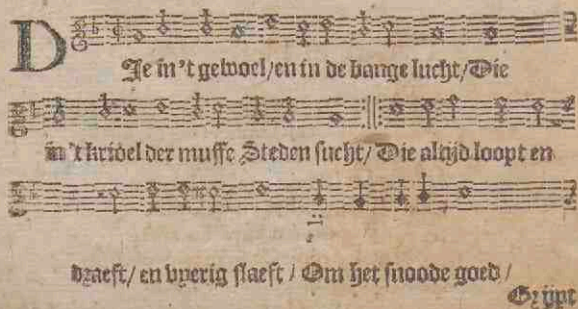 DJe in't gewoel/en in de bange lucht/Die
in 't krioel der muffe Steden sucht/Die altijd loopt en
draeft/ en vyerig slaeft / Om het snoode goed /
Grijpt